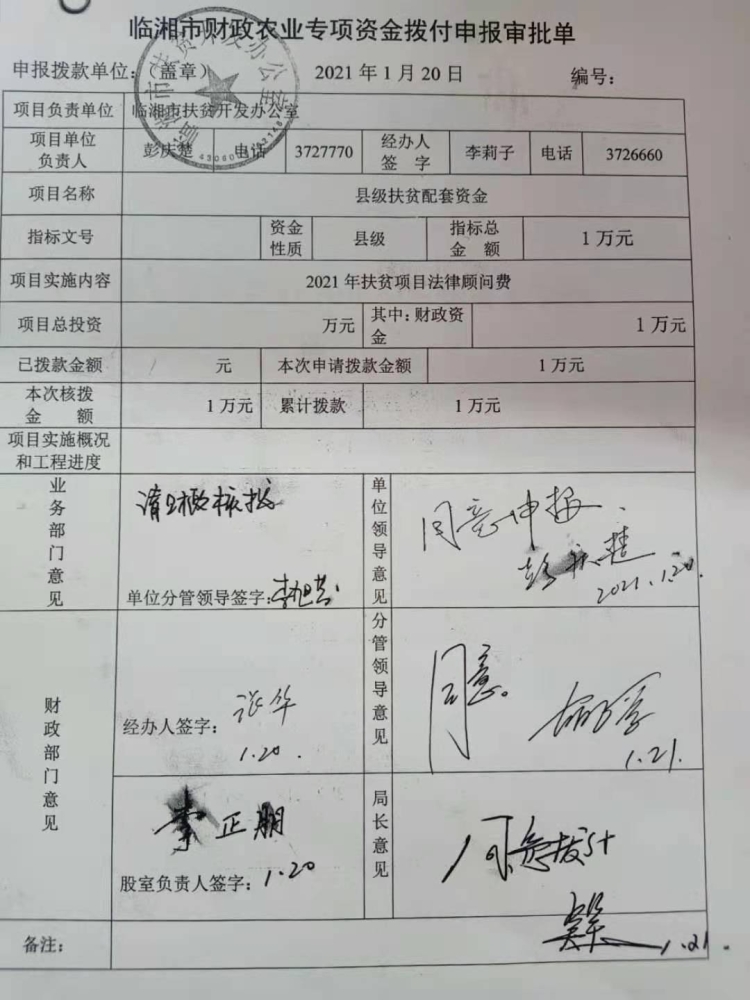 临湘市财政农业专项资金拨付申报审批单
申报拨款单位：（盖章） 2021年1月20日 编号：
项目负责单位 临湘市扶贫开发办公室
项目单位负责人 彭庆楚 电话 3727770 经办人签字 李莉子 电话 3726660
项目名称 县级扶贫配套资金
指标文号 资金性质 县级 指标总金额 1万元
项目实施内容 2021年扶贫项目法律顾问费
项目总投资 万元 其中：财政资金 1万元
已拨款金额 元 本次申请拨款金额 1万元
本次核拨金额 1万元 累计拨款 1万元
项目实施概况和工程进度
业务部门意见 请财政核拨
单位分管领导签字：
单位领导意见 同意申报、
彭庆楚
2021.1.20.
财政部门意见
经办人签字： 张华
1.20.
分管领导意见 同意。
1.21.
李正朋
股室负责人签字： 1.20
局长意见 同意拨付
1.21.
备注：